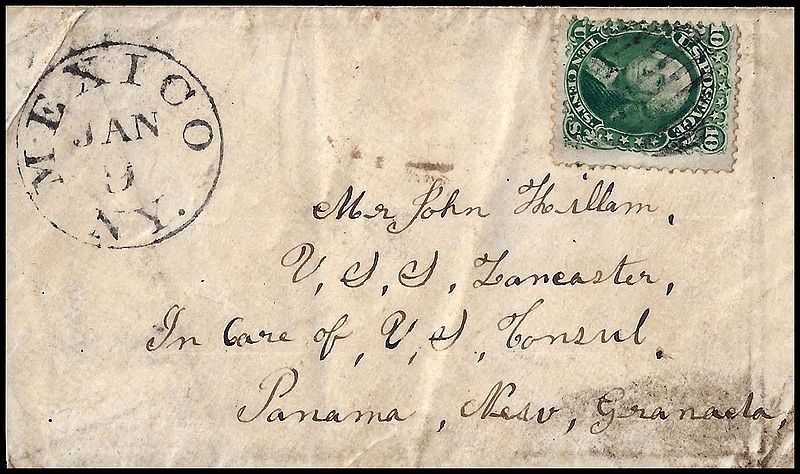 MEXICO
JAN
9
N.Y.
U.S. POSTAGE
10
10
TEN CENTS
U S
Mr John Killam,
U, S, S, Lancaster,
In Care of, U, S, Consul.
Panama, New, Granada,